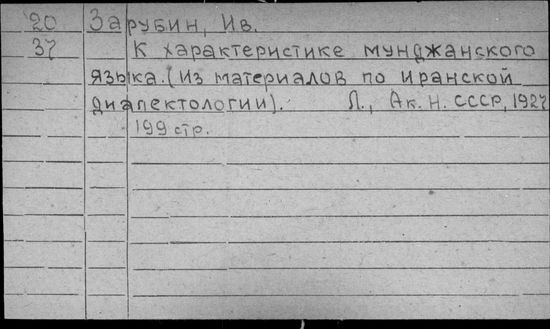 20 Зарубин, Ив.
37 К характеристике мунджанского
языка. (Из материалов по иранской
диалектологии). Л., Ак. Н. СССР, 1927
199 стр.